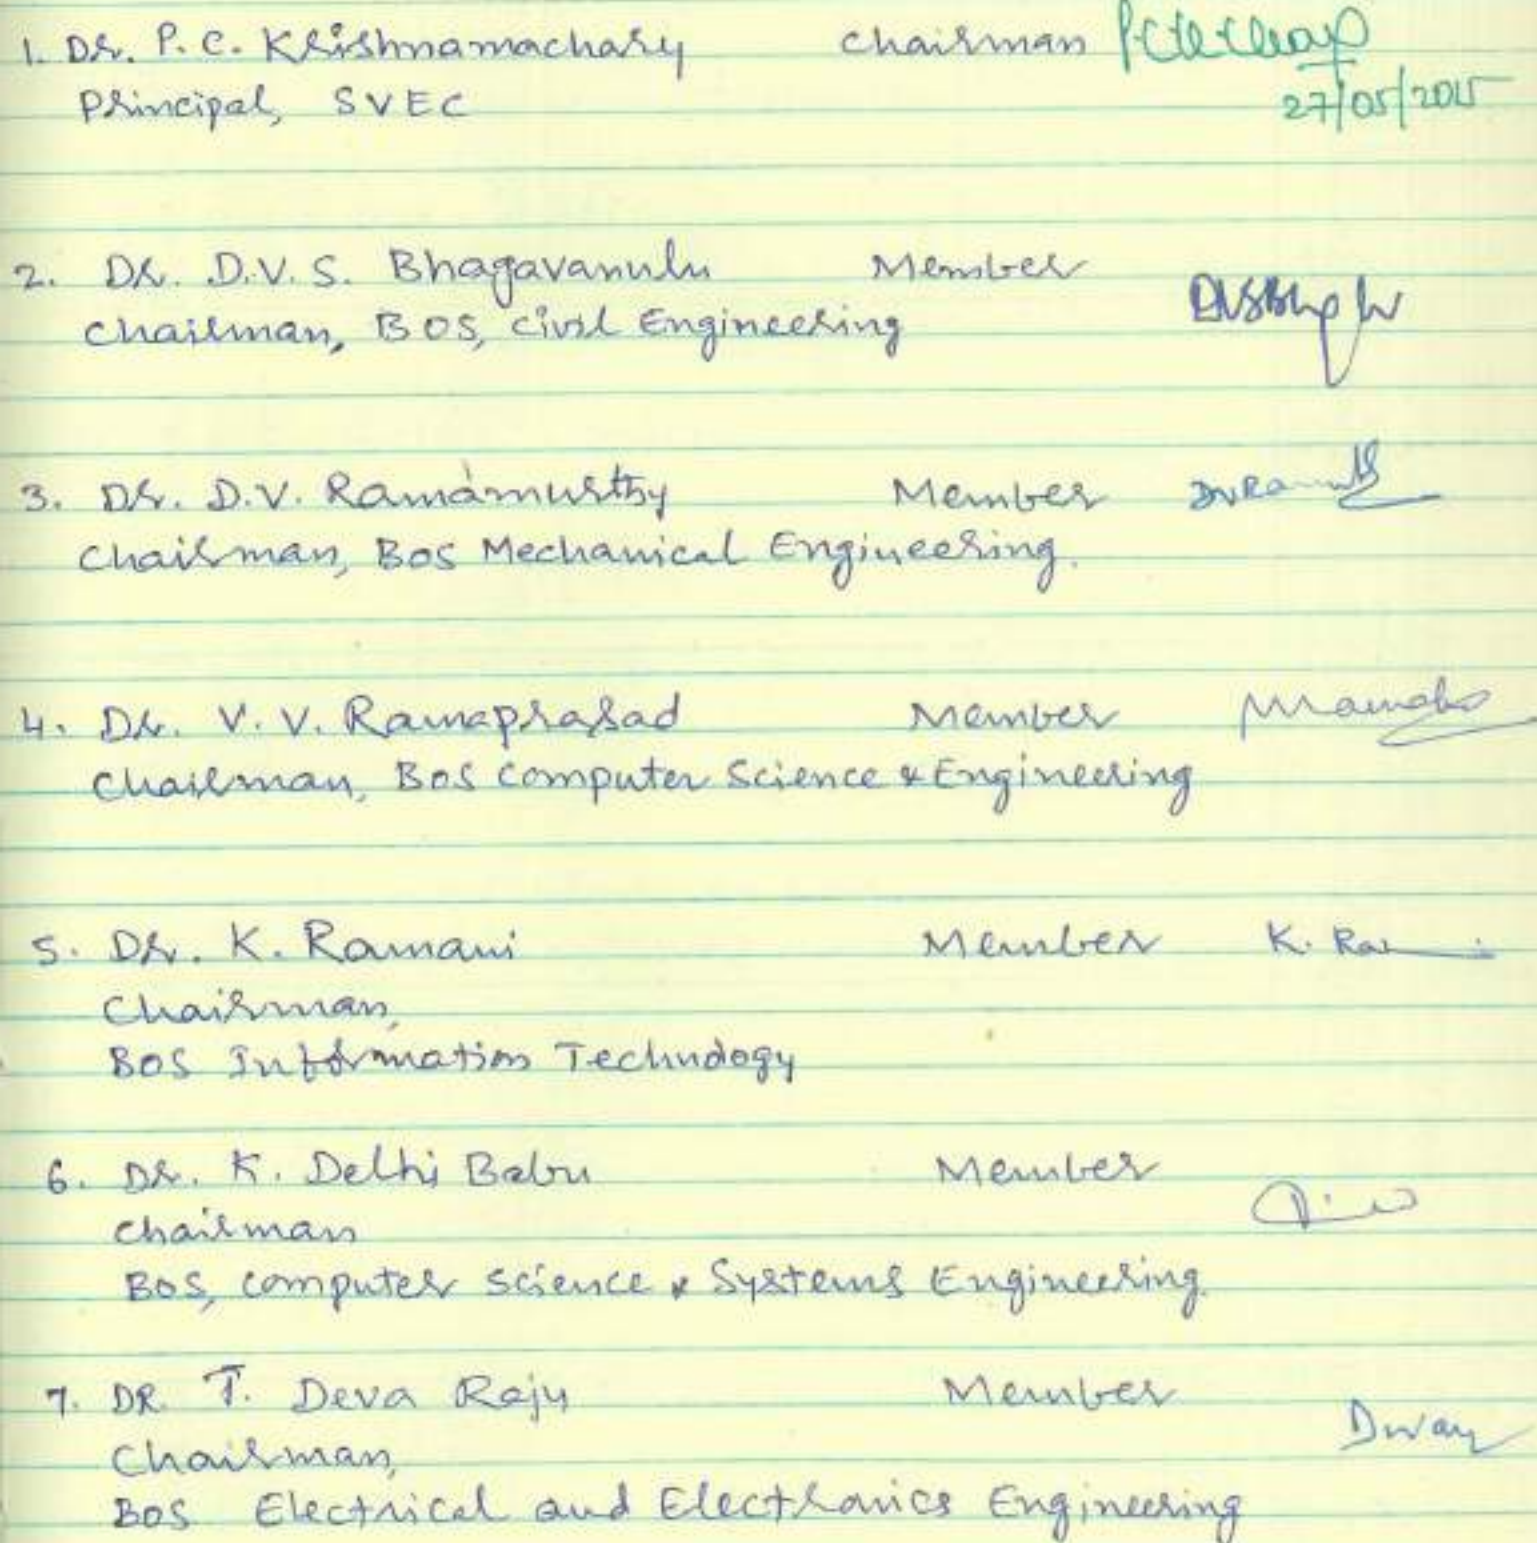 1. Dr. P. C. Krishnamachary Chairman
Principal, SVEC 27/05/2015
2. Dr. D.V.S. Bhagavanulu Member
Chairman, BOS, Civil Engineering
3. Dr. D.V. Ramamurthy Member
Chairman, BOS Mechanical Engineering.
4. Dr. V. V. Ramaprasad Member
Chairman, BOS Computer Science & Engineering
5. Dr. K. Ramani Member K. Ra
Chairman,
BOS Information Technology
6. Dr. K. Delhi Babu Member
Chairman
BOS, Computer Science & Systems Engineering.
7. DR. T. Deva Raju Member
Chairman,
BOS Electrical and Electronics Engineering